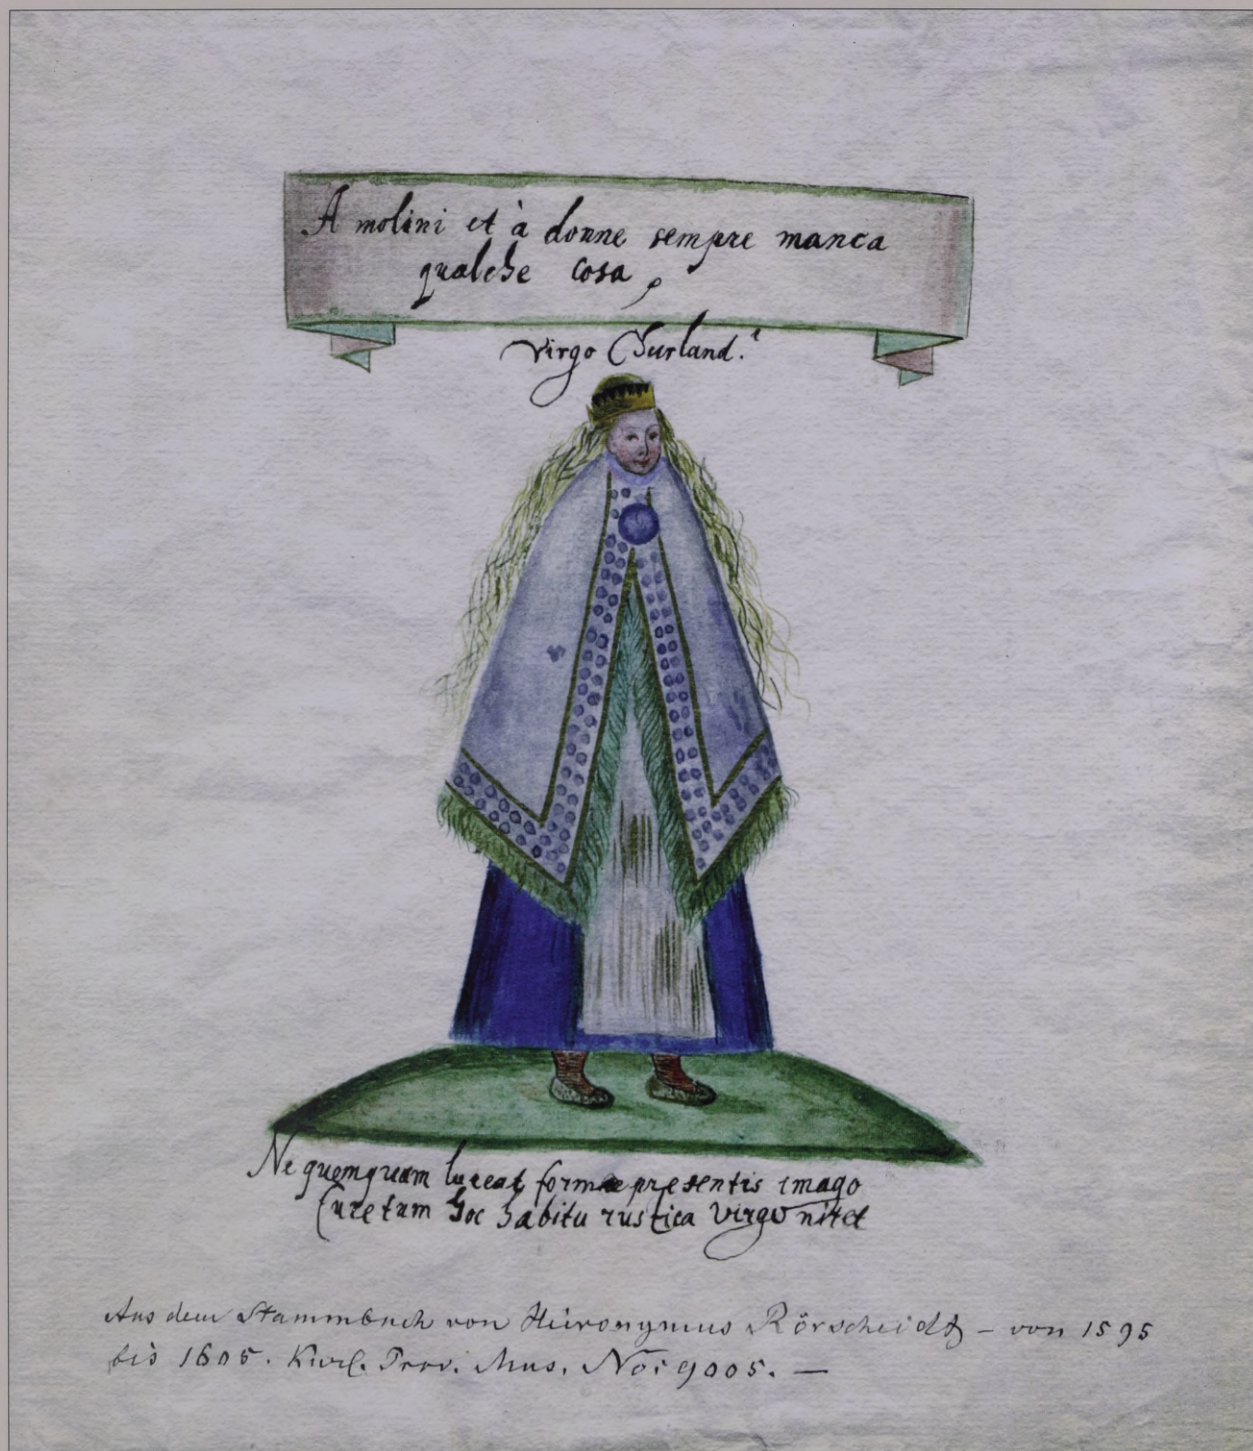 A molini et à donne sempre manca
qualche cosa,
Virgo Churland.
Ne quemquam formae presentis imago
hoc habitu rustica virgo nitet
Aus dem Stammbuch von Hieronymus Rörscheidt – von 1595
bis 1605. Kurl. Prov. Mus. No: 9005. —